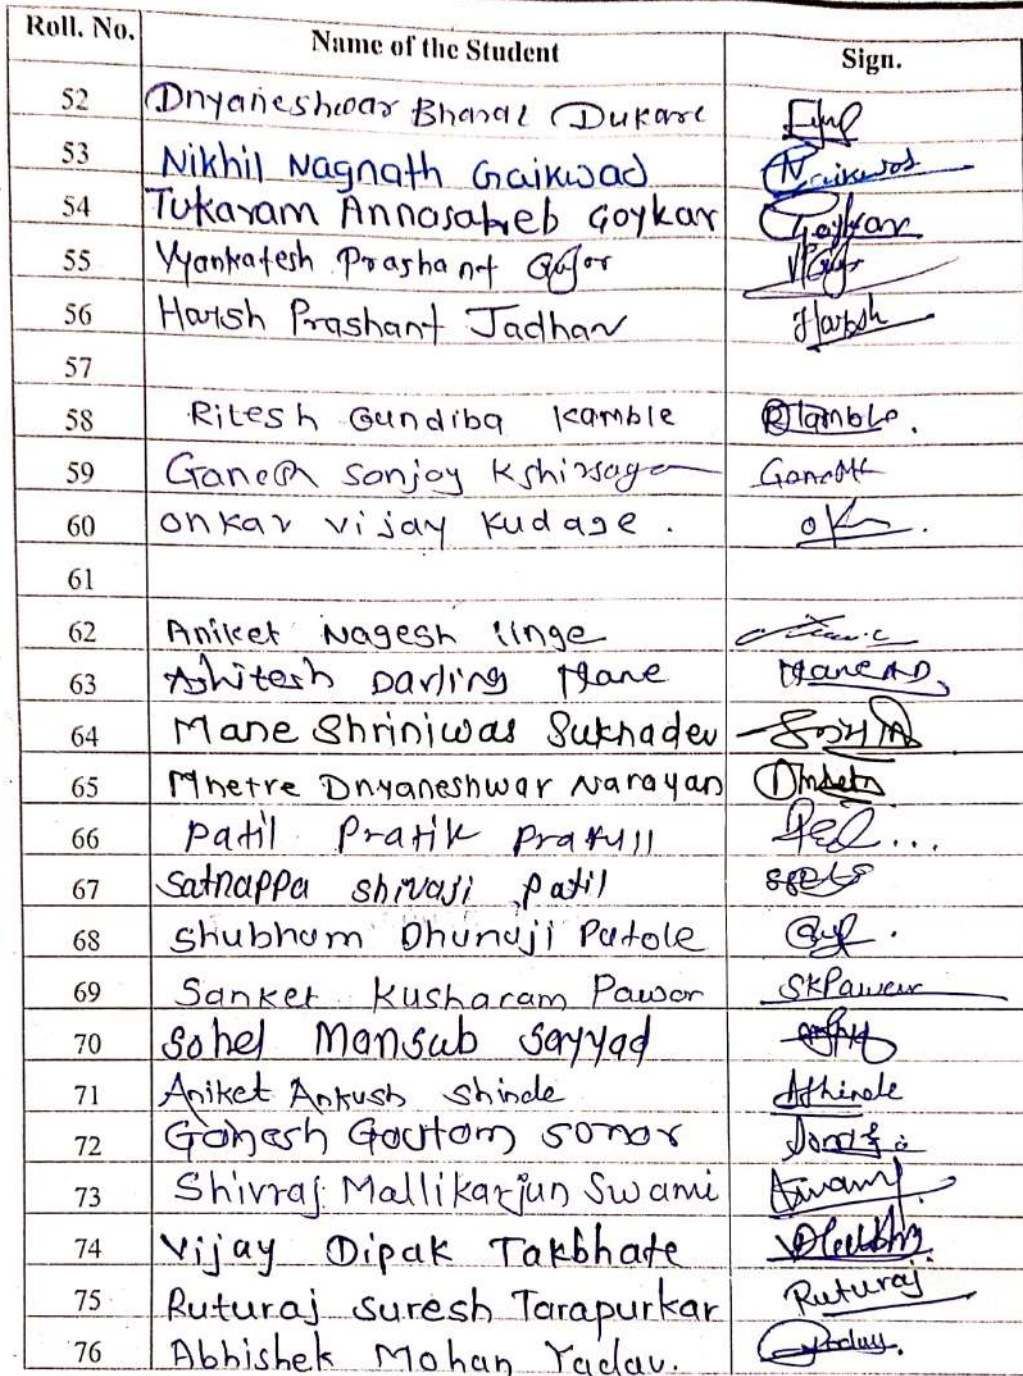 Roll. No. Name of the Student Sign.
52 Dnyaneshwar Bharat Dukare
53 Nikhil Nagnath Gaikwad Gaikwad
54 Tukaram Annasaheb Goykar Goykar
55 Vyankatesh Prashant Gujor
56 Harsh Prashant Jadhav Harsh
57
58 Ritesh Gundiba Kamble RKamble.
59 Ganesh Sanjay Kshirsagar
60 onkar vijay kudage. OK
61
62 Aniket Nagesh linge
63 Ashitesh Darling Mane Mane AD.
64 Mane Shriniwas Sukhadev
65 Mhetre Dnyaneshwar Narayan
66 Patil Pratik Prafull
67 Satnappa Shivaji Patil
68 Shubham Dhunaji Patole
69 Sanket Kusharam Pawar SKPawar
70 Sohel Mansub Sayyad
71 Aniket Ankush Shinde AShinde
72 Ganesh Goutam Sonar
73 Shivraj Mallikarjun Swami Swami
74 Vijay Dipak Takbhate
75 Ruturaj Suresh Tarapurkar Ruturaj
76 Abhishek Mohan Yadav.